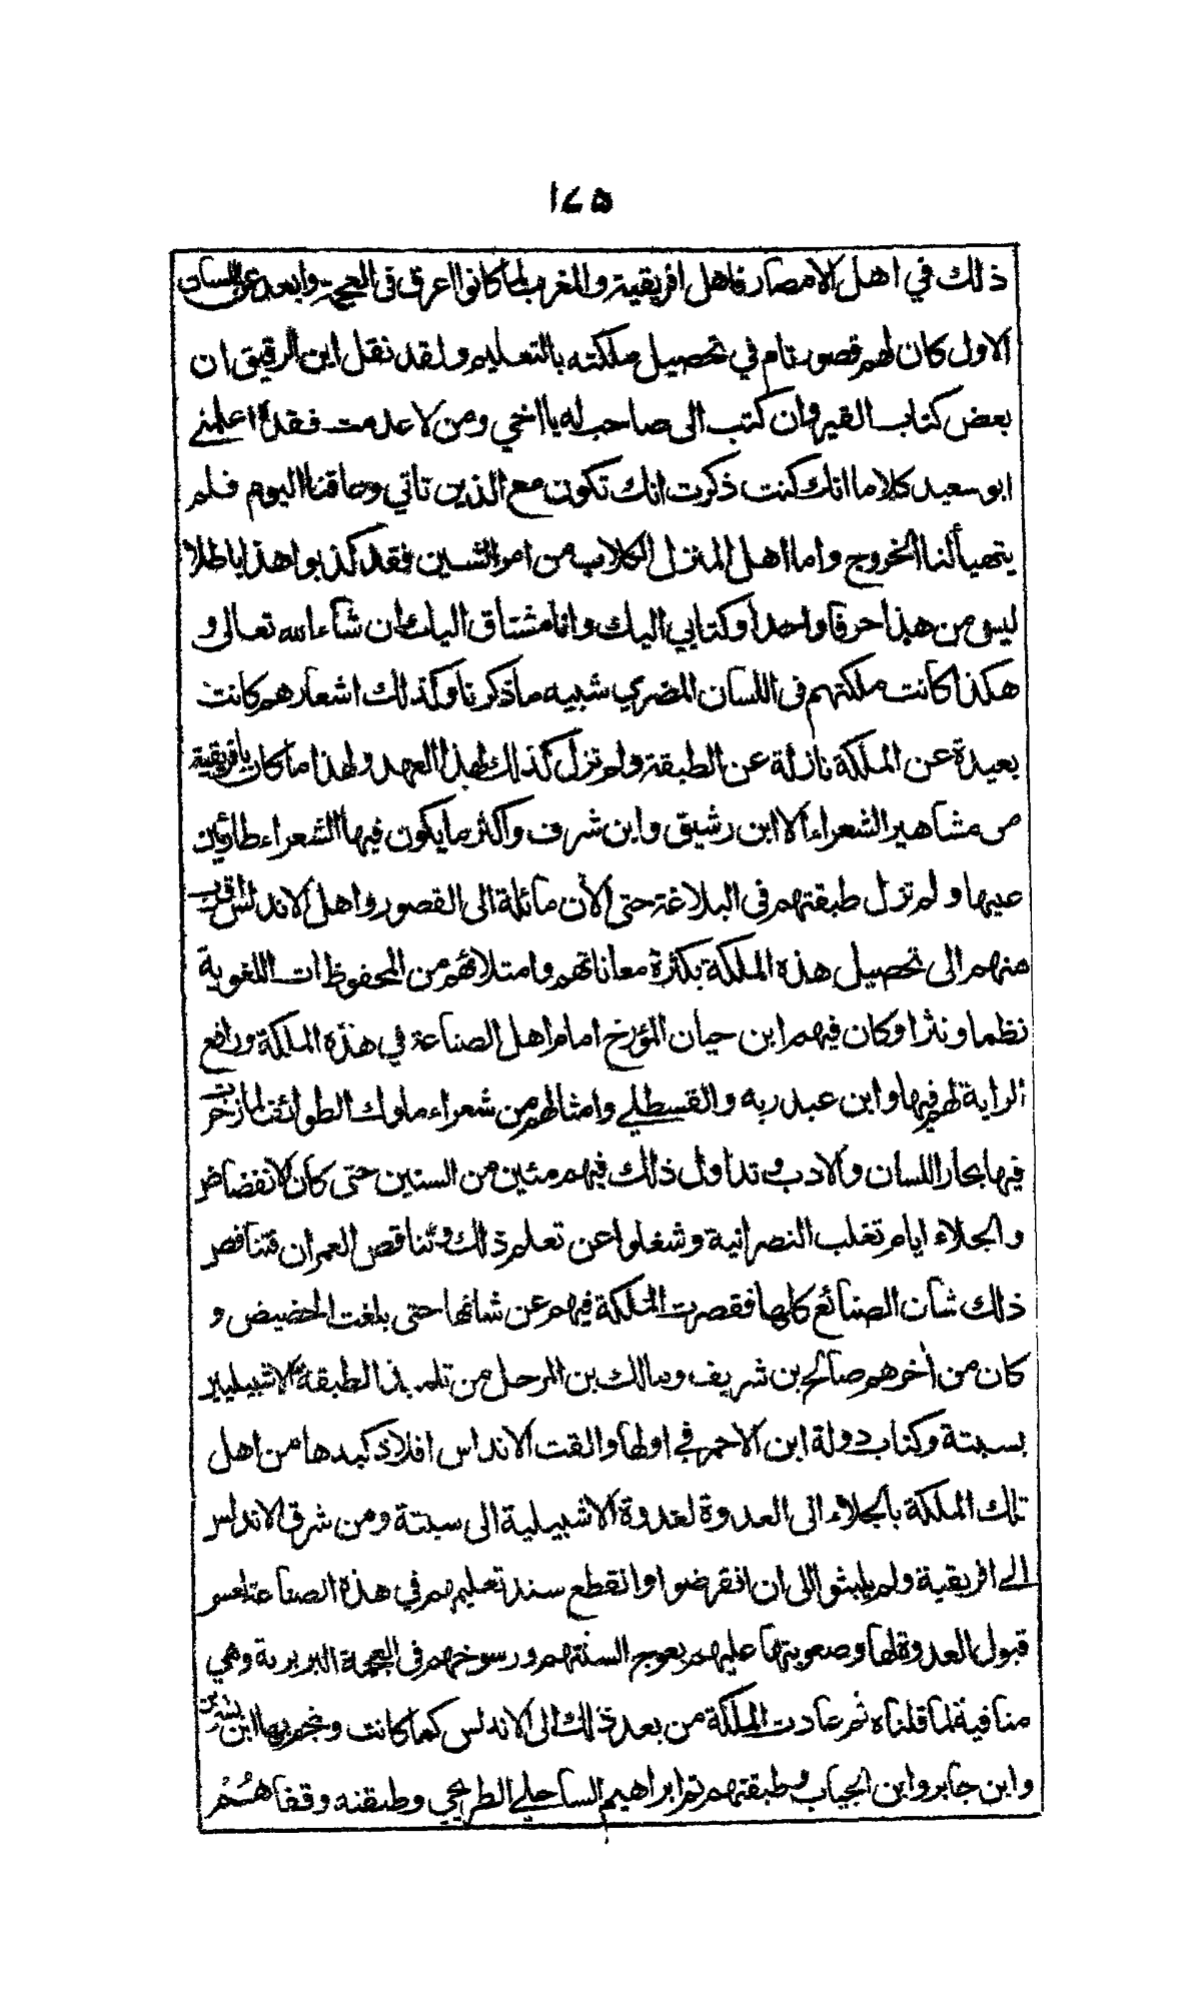 ١٤٥
ذلك في اهل الامصار فاهل افريقية والمغرب لما كانوا اعرق فى العجمة وابعد عن اللسان
الاول كان لهم قصور تام في تحصيل ملكته بالتعليم ولقد نقل ابن الرقيق ان
بعض كتاب القيروان كتب الى صاحب له يا اخي ومن لا عدمت فقده اعلمني
ابو سعيد كلاما انك كنت ذكرت انك تكون مع الذين تاتي وعاقنا اليوم فلم
يتهيأ لنا الخروج واما اهل المنزل الكلاب من امر الشين فقد كذبوا هذا باطلا
ليس من هذا حرفا واحدا وكتابي اليك وانا مشتاق اليك ان شاء الله تعالى و
هكذا كانت ملكتهم فى اللسان المضري شبيه ما ذكرنا وكذلك اشعارهم كانت
بعيدة عن الملكة نازلة عن الطبقة ولم تزل كذلك لهذا العهد ولهذا ما كان بافريقية
من مشاهير الشعراء الا ابن رشيق وابن شرف واكثر ما يكون فيها الشعراء طارئين
عيها ولم تزل طبقتهم فى البلاغة حتى الأن مائلة الى القصور واهل الاندلس اقرب
منهم الى تحصيل هذه الملكة بكثرة معاناتهم وامتلائهم من المحفوظات اللغوية
نظما ونثرا وكان فيهم ابن حيان المؤرخ امام اهل الصناعة في هذه الملكة ورافع
الراية لهم فيها وابن عبد ربه والقسطلي وامثالهم من شعراء ملوك الطوائف لما زخرت
فيها بحار اللسان والادب وتداول ذلك فيهم مئين من السنين حتى كان الانفضاض
والجلاء ايام تغلب النصرانية وشغلوا عن تعلم ذلك وتناقص العمران فتناقص
ذلك شان الصنائع كلها فقصرت الملكة فيهم عن شانها حتى بلغت الحضيض و
كان من أخرهم صالح بن شريف ومالك بن المرحل من تلميذ الطبقة الاشبيليين
بسبتة وكتاب دولة ابن الاحمر في اولها والقت الاندلس افلاذ كبدها من اهل
تلك الملكة بالجلاء الى العدوة لعدوة الاشبيلية الى سبتة ومن شرق الاندلس
الى افريقية ولم يلبثوا الى ان انقرضوا وانقطع سند تعليمهم في هذه الصناعة لعسر
قبول العدوة لها وصعوبتها عليهم بعوج السنتهم ورسوخهم فى العجمة البربرية وهي
منافية لما قلناه ثم عادت الملكة من بعد ذلك الى الاندلس كما كانت ونجم بها ابن بشرين
وابن جابر وابن الجياب وطبقتهم ثم ابراهيم الساحلي الطريجي وطبقته وقفاهُمْ